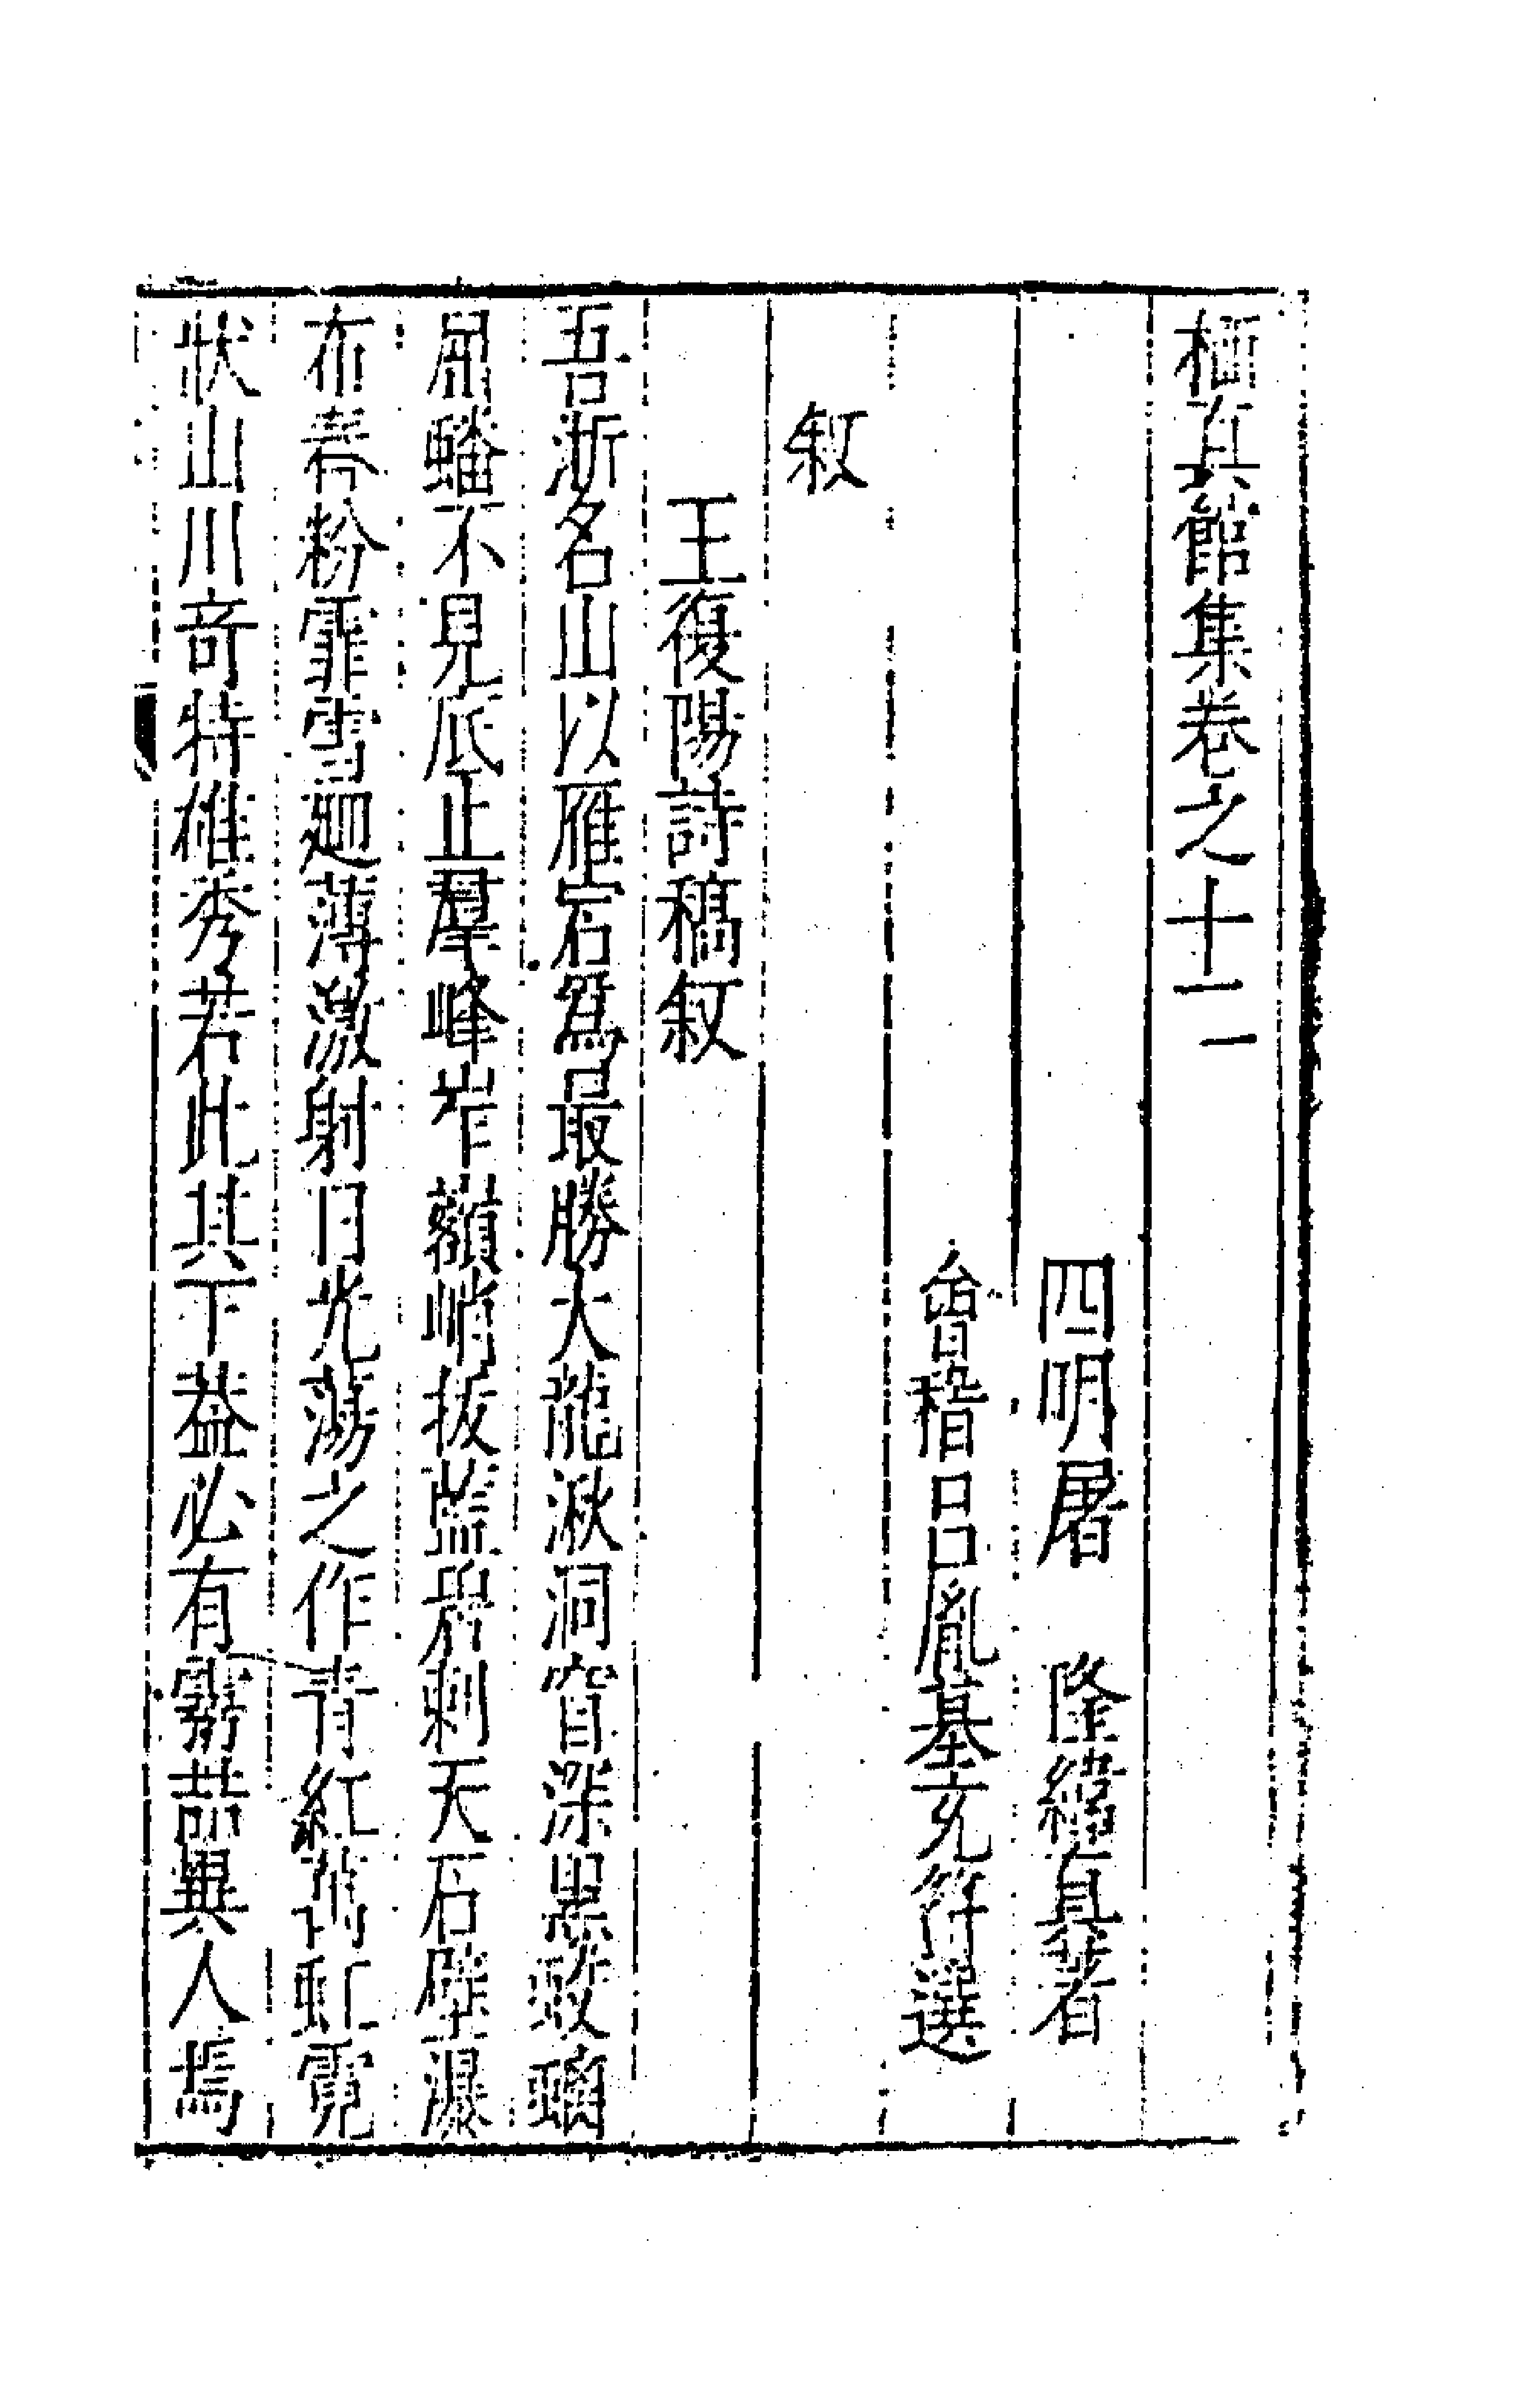 栖真館集卷之十二
四明屠　隆緯真著
會稽呂胤基玄符選
叙
王復陽詩稿叙
吾浙名山以雁宕爲最勝大龍湫洞窅深黑蛟螭
屈蟠不見底止羣峰岝峭拔刺天石壁瀑
布舂粉霏雪迴薄激射日光蕩之作青紅虹霓
狀山川奇特雄秀若此其下葢必有靈喆異人焉